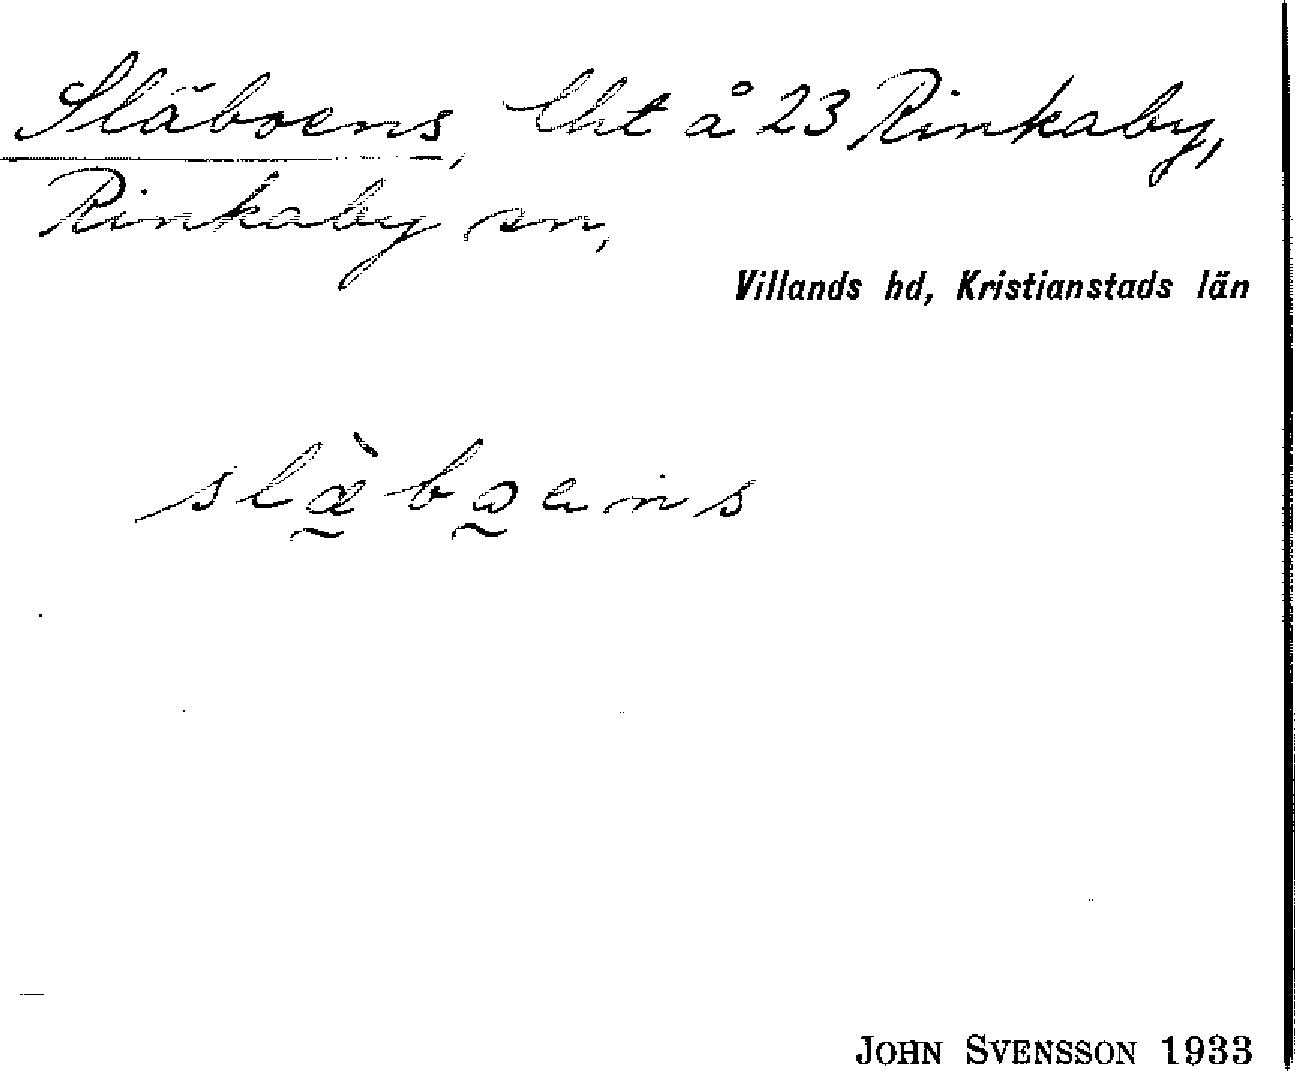 Släboens, lht å 23 Rinkaby,
Rinkaby sn,
Villands hd, Kristianstads län
JOHN SVENSSON 1933